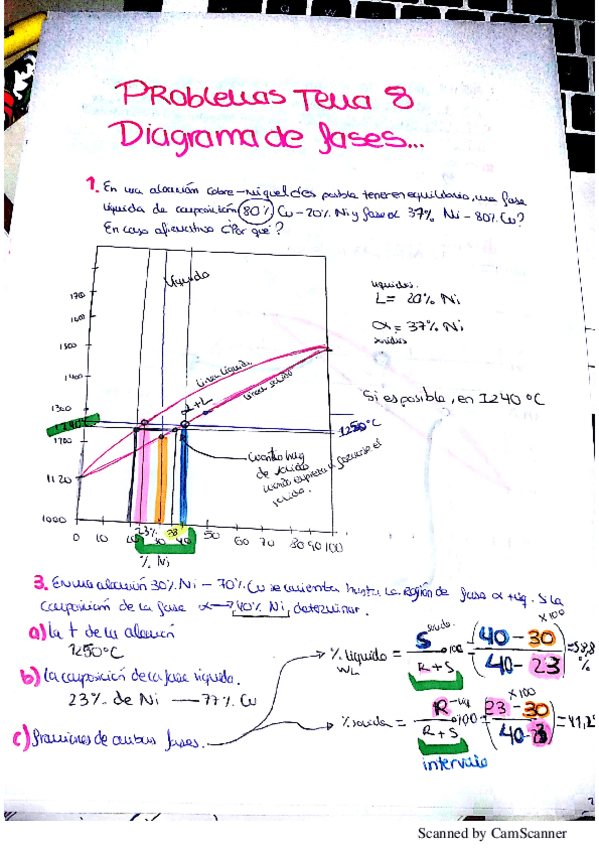 Problemas Tema 8
Diagrama de fases...
1. En una aleación cobre-níquel ¿es posible tener en equilibrio, una fase
líquida de composición 80% Cu-20% Ni y fase α 37% Ni - 80% Cu?
En caso afirmativo ¿Por qué?
Líquido
liquidus.
L= 20% Ni
α = 37% Ni
solidus
1700
1600
1500
1400
1300
1200
1120
1000
Linea líquido
α+L
Linea solido
Si es posible, en 1240ºC
1250ºC
Cuanto hay
de sólido
sólido.
23%
38
0 10 20 30 40 50 60 70 80 90 100
% Ni
3. En una aleación 30% Ni - 70% Cu se calienta hasta la región de fase α + liq. Si la
composición de la fase α → 40% Ni, determinar.
a) la t de la aleación
1250ºC
b) la composición de la fase líquida.
23% de Ni — 77% Cu
c) fracciones de ambas fases.
% líquido = S / R+S · 100 = (40-30 / 40-23) x100 = 58,8 %
WL
% solido = R / R+S · 100 = (23-30 / 40-23) x100 = 41,2
intervalo
Scanned by CamScanner